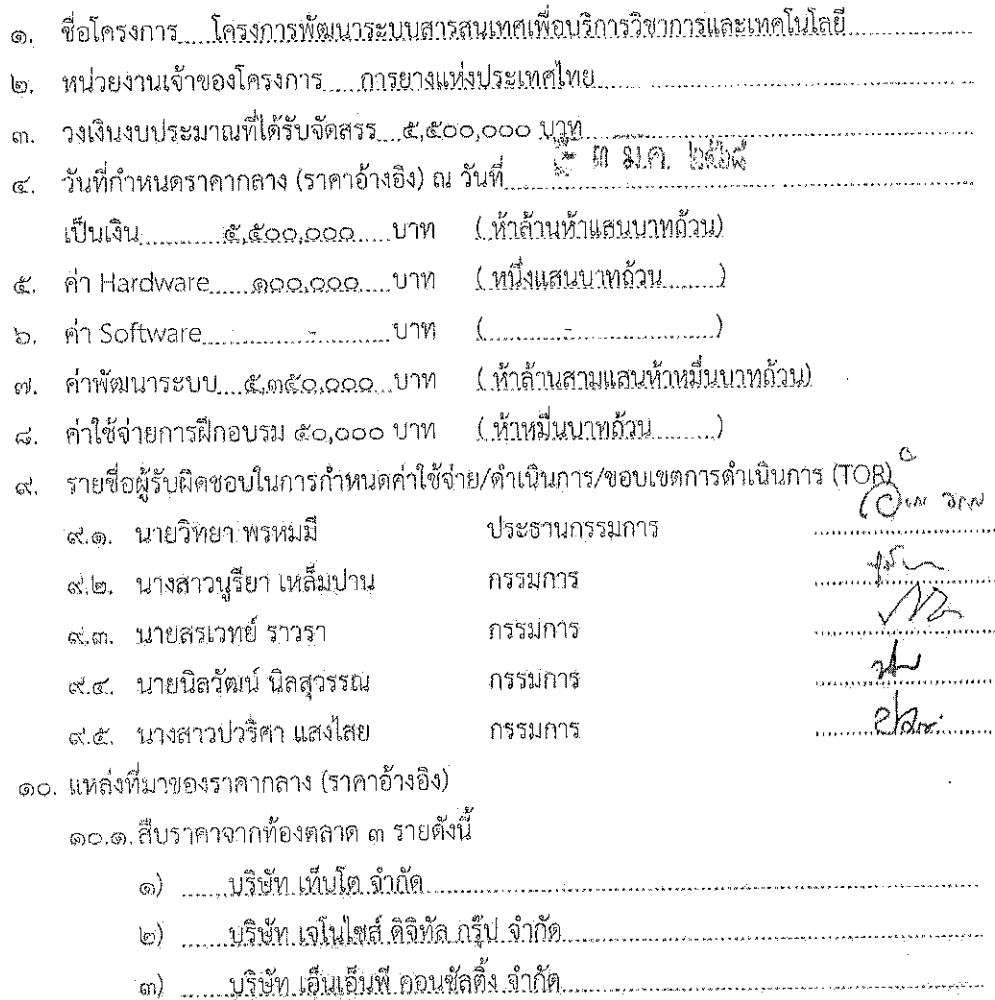 ๑. ชื่อโครงการ โครงการพัฒนาระบบสารสนเทศเพื่อบริการวิชาการและเทคโนโลยี
๒. หน่วยงานเจ้าของโครงการ การยางแห่งประเทศไทย
๓. วงเงินงบประมาณที่ได้รับจัดสรร ๕,๕๐๐,๐๐๐ บาท
๔. วันที่กำหนดราคากลาง (ราคาอ้างอิง) ณ วันที่ ๓ ม.ค. ๒๕๖๘
เป็นเงิน ๕,๕๐๐,๐๐๐ บาท (ห้าล้านห้าแสนบาทถ้วน)
๕. ค่า Hardware ๑๐๐,๐๐๐ บาท (หนึ่งแสนบาทถ้วน)
๖. ค่า Software - บาท ( - )
๗. ค่าพัฒนาระบบ ๕,๓๕๐,๐๐๐ บาท (ห้าล้านสามแสนห้าหมื่นบาทถ้วน)
๘. ค่าใช้จ่ายการฝึกอบรม ๕๐,๐๐๐ บาท (ห้าหมื่นบาทถ้วน)
๙. รายชื่อผู้รับผิดชอบในการกำหนดค่าใช้จ่าย/ดำเนินการ/ขอบเขตการดำเนินการ (TOR)
๙.๑. นายวิทยา พรหมมี ประธานกรรมการ
๙.๒. นางสาวนูรียา เหล็มปาน กรรมการ
๙.๓. นายสรเวทย์ ราวรา กรรมการ
๙.๔. นายนิลวัฒน์ นิลสุวรรณ กรรมการ
๙.๕. นางสาวปวริศา แสงไสย กรรมการ
๑๐. แหล่งที่มาของราคากลาง (ราคาอ้างอิง)
๑๐.๑. สืบราคาจากท้องตลาด ๓ รายดังนี้
๑) บริษัท เท็นโต จำกัด
๒) บริษัท เจโนไซส์ ดิจิทัล กรุ๊ป จำกัด
๓) บริษัท เอ็นเอ็นพี คอนซัลติ้ง จำกัด